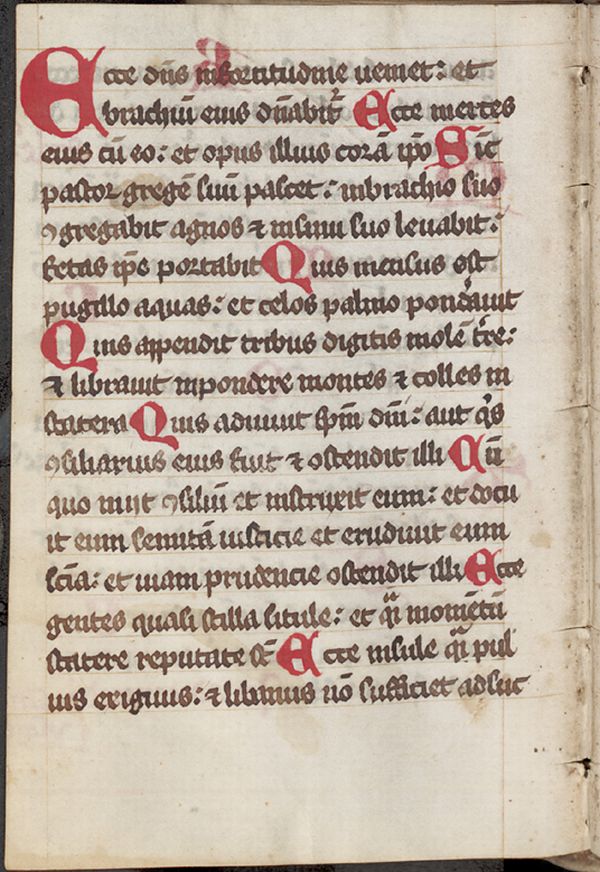 Ecce dn̄s infortitudine ueniet: et
brachiū eius dn̄abit᷑ Ecce merces
eius cū eo: et opus illius corā ip̄o Sic̄
pastor gregē suū pascet: inbrachio suo
ꝯgregabit agnos ⁊ insinu suo leuabit:
fetas ip̄e portabit Quis mensus est
pugillo aquas: et celos palmo pondāuit
Quis appendit tribus digitis molē t̄re:
⁊ librauit inpondere montes ⁊ colles in
statera Quis adiuuit sp̄m dn̄i: aut q̄s
ꝯsiliarius eius fuit ⁊ ostendit illi Cū
quo iniit ꝯsiliū et instruxit eum: et docu
it eum semitā iusticie et erudiuit eum
scīa: et uiam prudencie ostendit illi Ecce
gentes quasi stilla situle: et q̄i momētū
statere reputate st̄ Ecce insule q̄i pul
uis exiguus: ⁊ libanus nō sufficiet adsuc